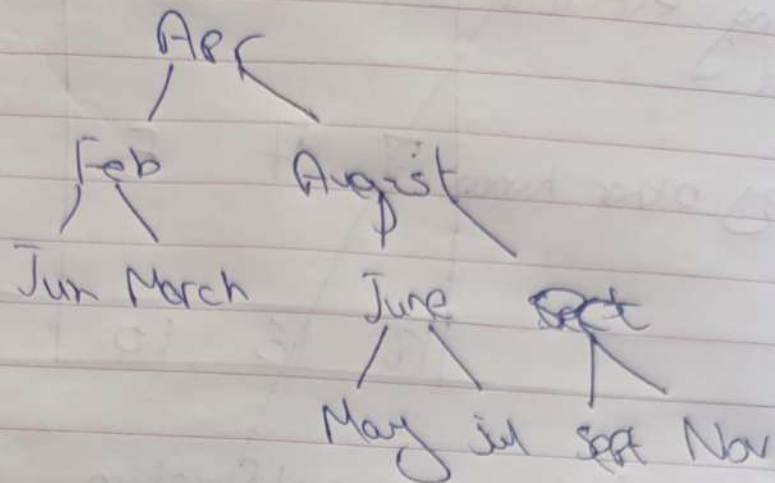 Apr
Feb August
Jan March June
May jul Sept Nov